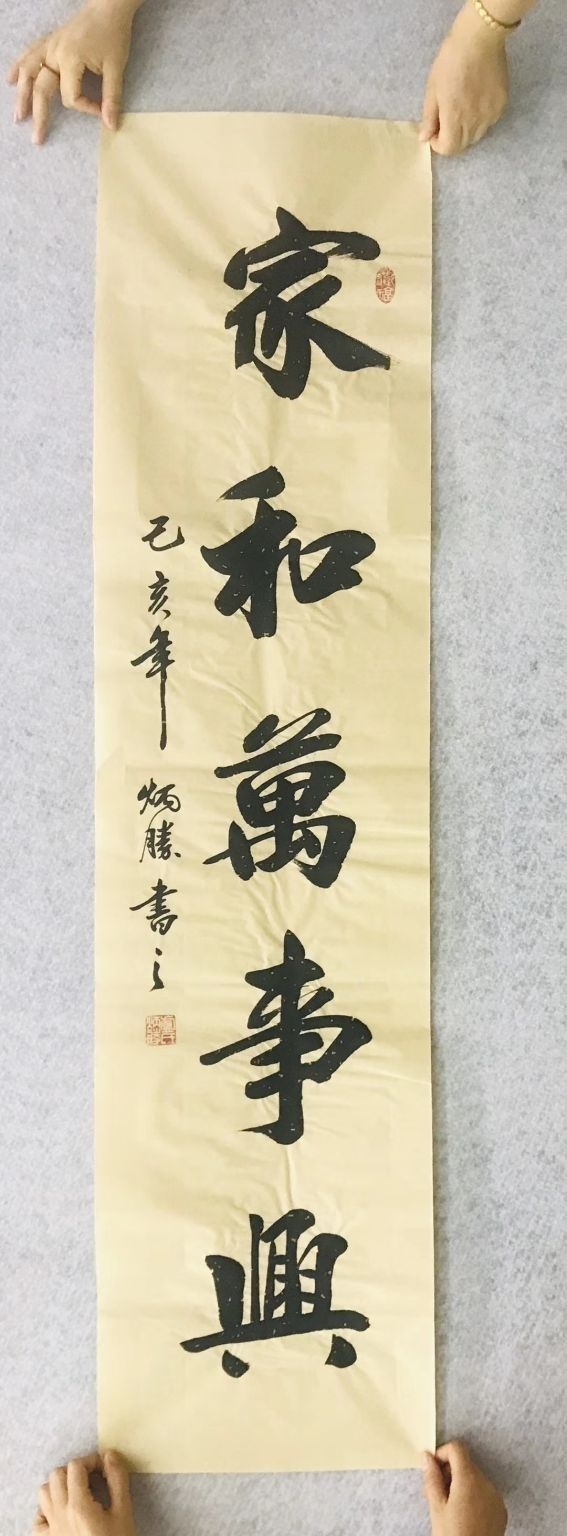 家和萬事興
己亥年 炳勝書之